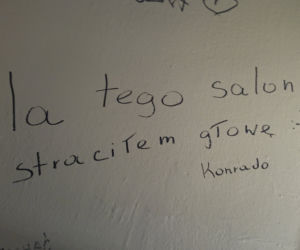 la tego salon
straciłem głowę :
Konrado